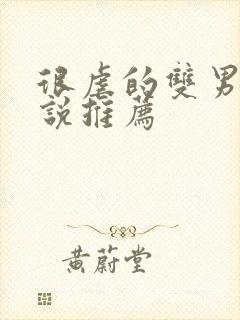 很虐的雙男
說推薦
黃蔚堂